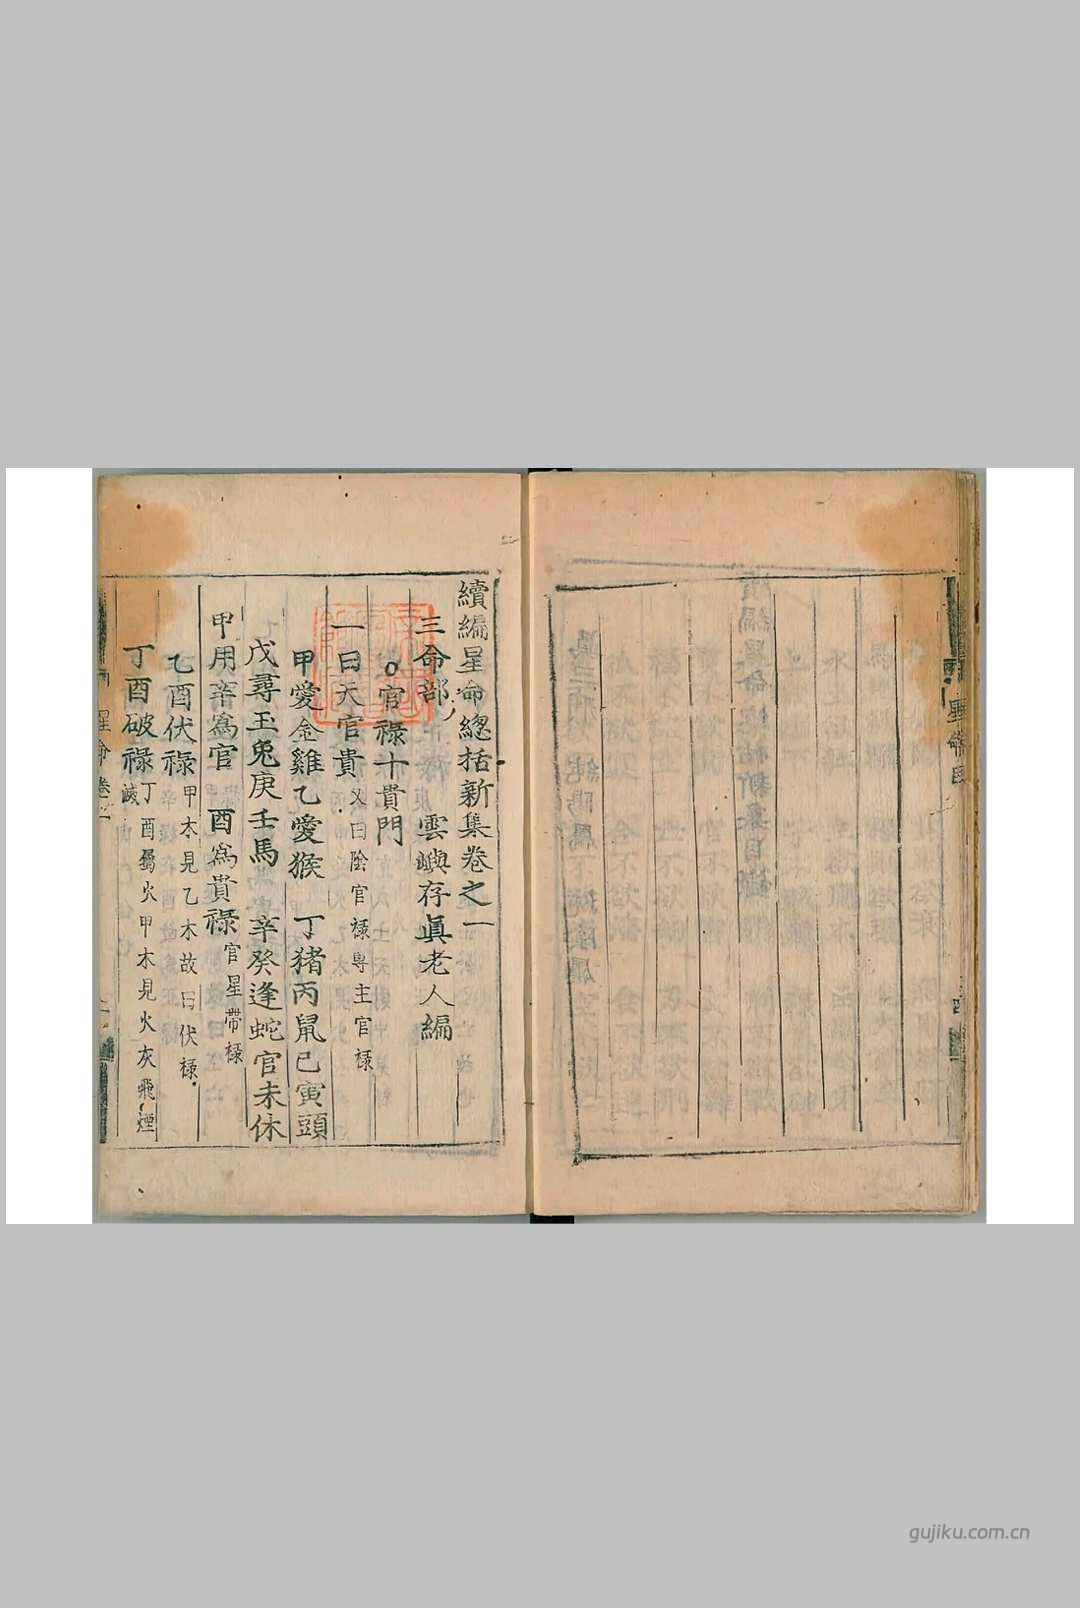 續編星命總括新集卷之一
三命部 雲嶼存眞老人編
○官祿十貴門
一曰天官貴 又曰陰官禄専主官禄
甲愛金雞乙愛猴 丁猪丙鼠己寅頭
戊尋玉兔庚壬馬 辛癸逢蛇官未休
甲用辛爲官 酉爲貴祿 官星帶禄
乙酉伏祿 甲木見乙木故曰伏禄
丁酉破祿 丁酉屬火甲木見火灰飛煙滅
gujiku.com.cn